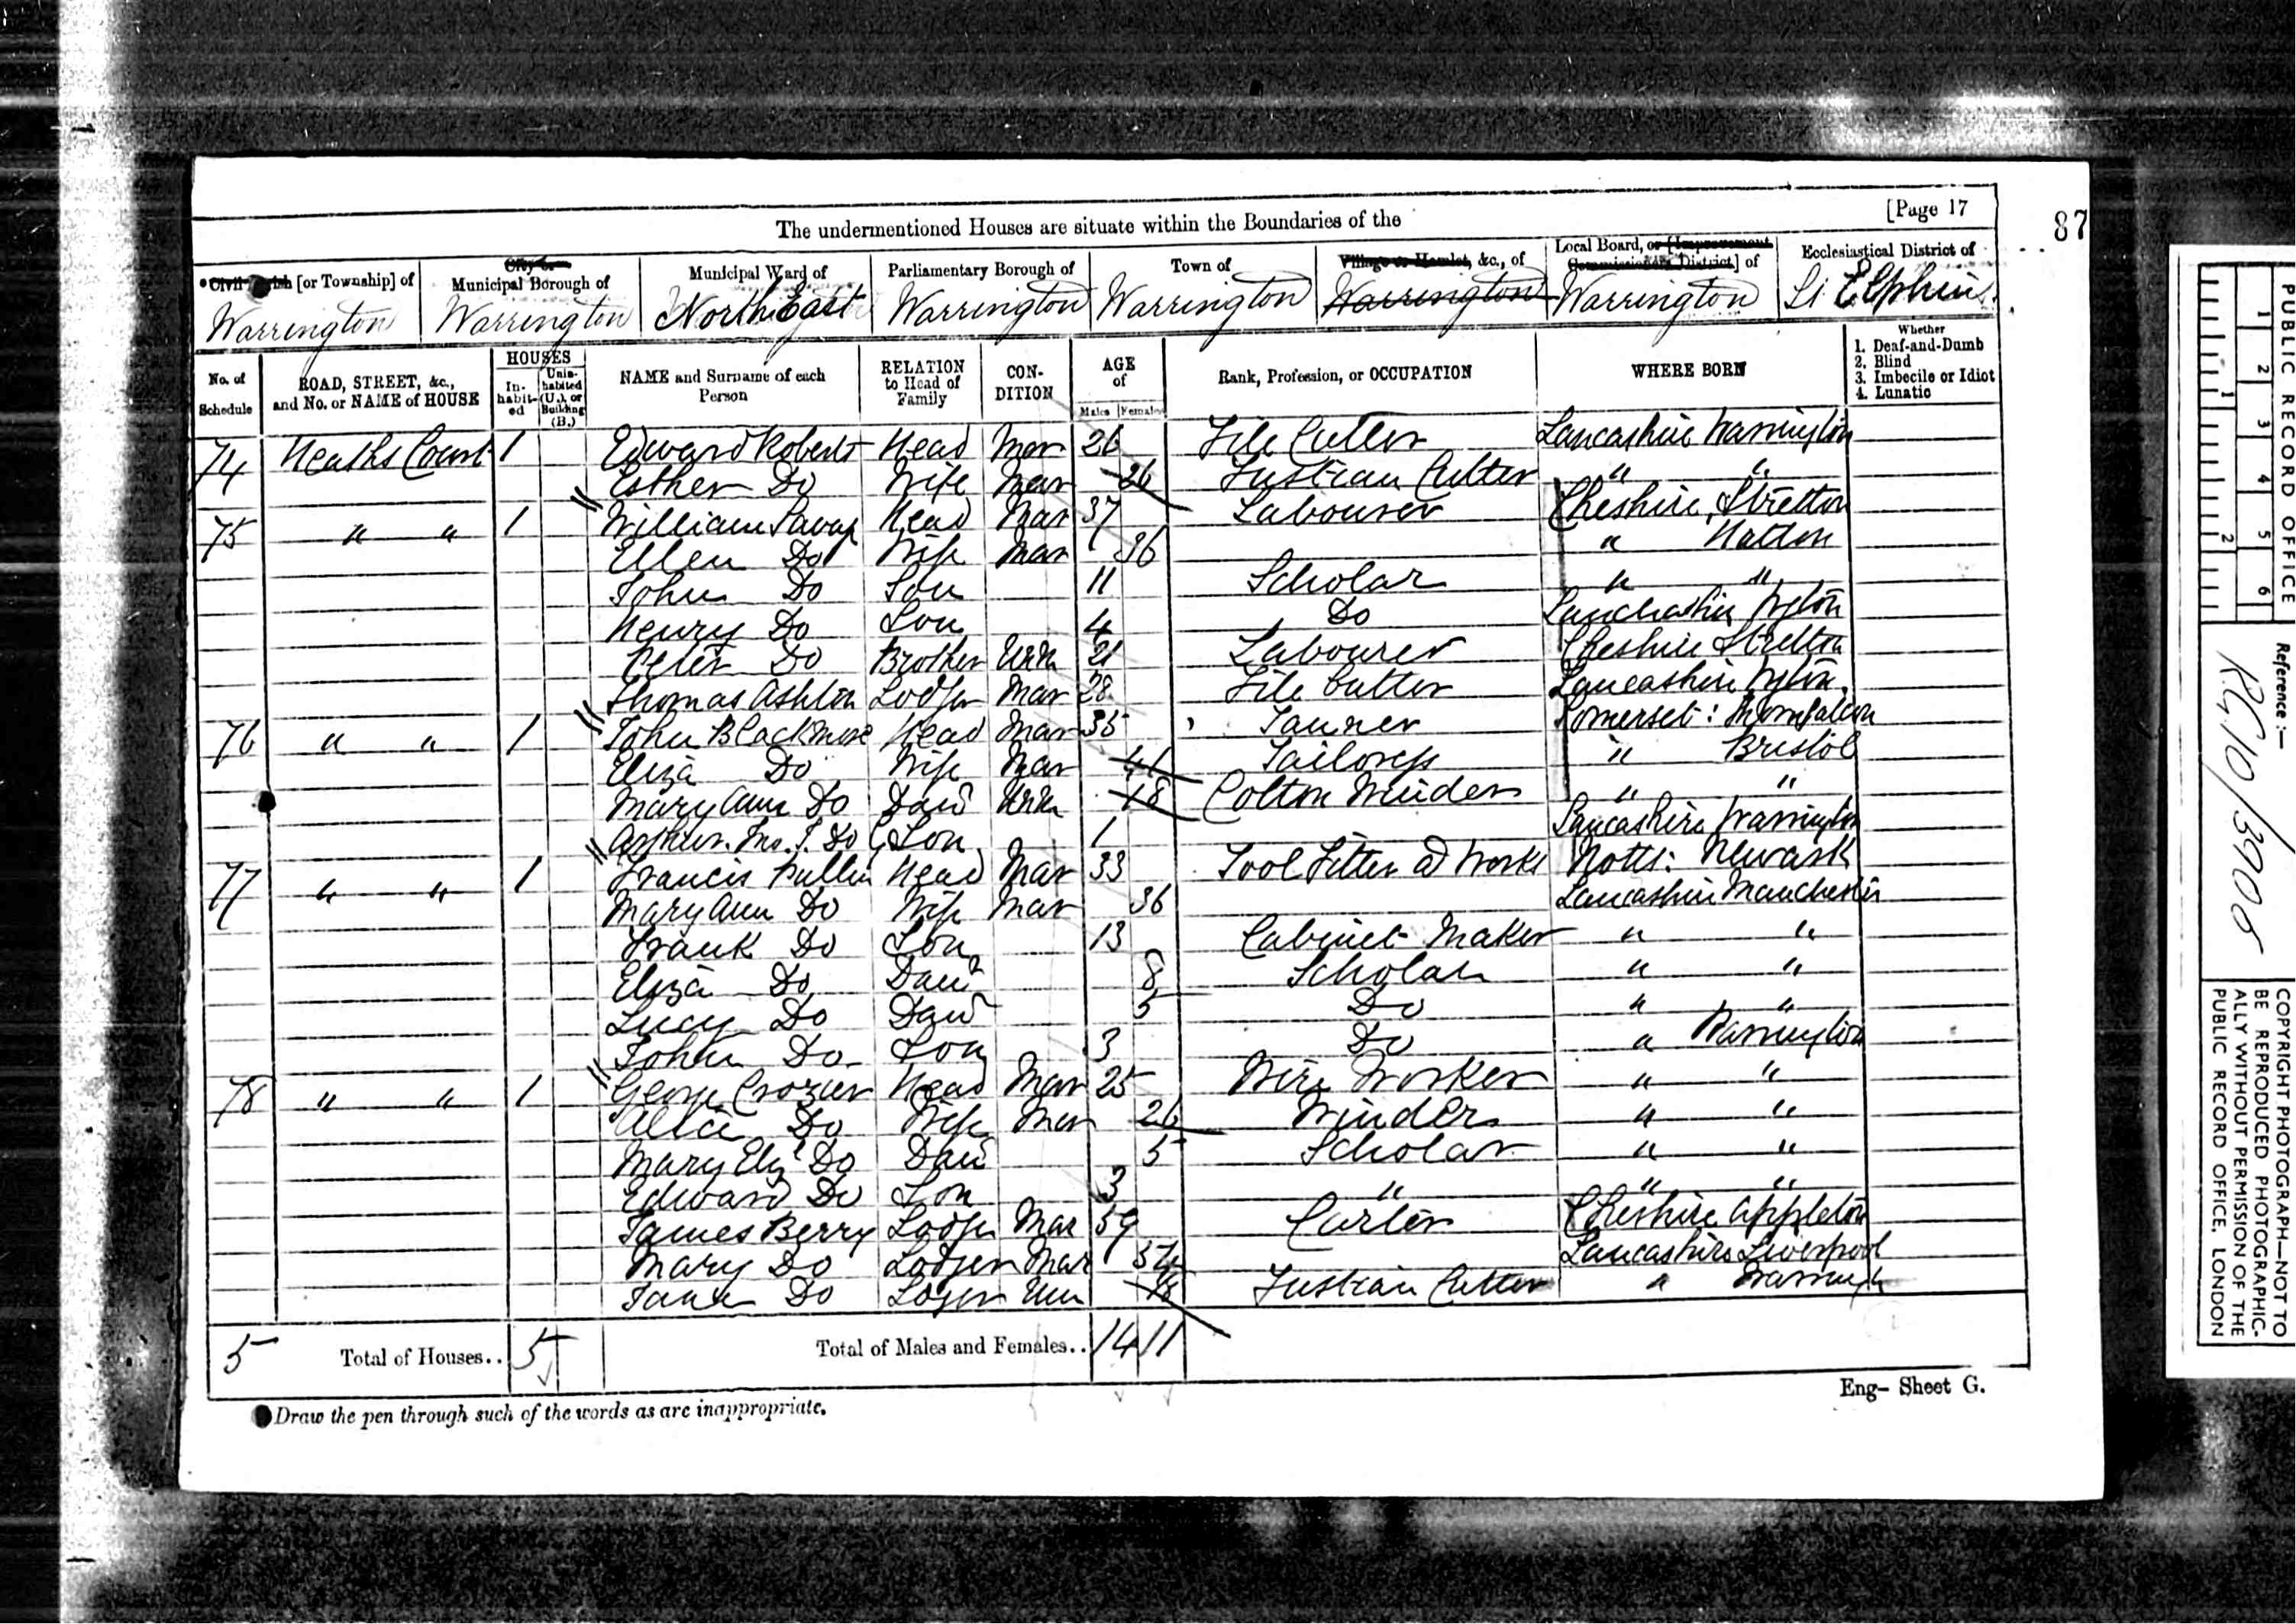 [Page 17
87
The undermentioned Houses are situate within the Boundaries of the
Civil Parish [or Township] of
Warrington
City or Municipal Borough of
Warrington
Municipal Ward of
North East
Parliamentary Borough of
Warrington
Town of
Warrington
Village or Hamlet, &c., of
Warrington
Local Board, or [Improvement Commissioners District] of
Warrington
Ecclesiastical District of
St Elphins
No. of Schedule
ROAD, STREET, &c., and No. or NAME of HOUSE
HOUSES
In-habit-ed
Unin-habited (U.), or Building (B.)
NAME and Surname of each Person
RELATION to Head of Family
CON-DITION
AGE of
Males Females
Rank, Profession, or OCCUPATION
WHERE BORN
Whether
1. Deaf-and-Dumb
2. Blind
3. Imbecile or Idiot
4. Lunatic
74 Heaths Court 1 Edward Roberts Head Mar 26 File Cutler Lancashire Warrington
Esther Do Wife Mar 26 Fustian Cutter " "
75 " " 1 William Savage Head Mar 37 Labourer Cheshire Stretton
Ellen Do Wife Mar 36 " Hatton
John Do Son 11 Scholar " "
Henry Do Son 4 Do Lancashire
Peter Do Brother Unm 21 Labourer Cheshire Stretton
Thomas Ashton Lodger Mar 28 File Cutter Lancashire
76 " " 1 John Blackmore Head Mar 35 Tanner Somerset:
Eliza Do Wife Mar 41 Tailoress " Bristol
Mary Ann Do Daur Unm 18 Cotton Winder " "
Arthur Do Son 1 Lancashire Warrington
77 " " 1 Francis Pullin Head Mar 33 Tool Fitter at Works Notts: Newark
Mary Ann Do Wife Mar 36 Lancashire Manchester
Frank Do Son 13 Cabinet Maker " "
Eliza Do Daur 8 Scholar " "
Lucy Do Daur 5 Do " "
John Do Son 3 Do " Warrington
78 " " 1 George Crozier Head Mar 25 Wire Worker " "
Alice Do Wife Mar 26 Winder " "
Mary Elizth Do Daur 5 Scholar " "
Edward Do Son 3 " " "
James Berry Lodger Mar 59 Carter Cheshire Appleton
Mary Do Lodger Mar 54 Lancashire Liverpool
Jane Do Loger Unm 18 Fustian Cutter "
5 Total of Houses.. 5 Total of Males and Females.. 14 11
Draw the pen through such of the words as are inappropriate.
Eng- Sheet G.
PUBLIC RECORD OFFICE
1 2 3 4 5 6
1 2
Reference :-
RG 10/3908
COPYRIGHT PHOTOGRAPH-NOT TO
BE REPRODUCED PHOTOGRAPHIC-
ALLY WITHOUT PERMISSION OF THE
PUBLIC RECORD OFFICE, LONDON